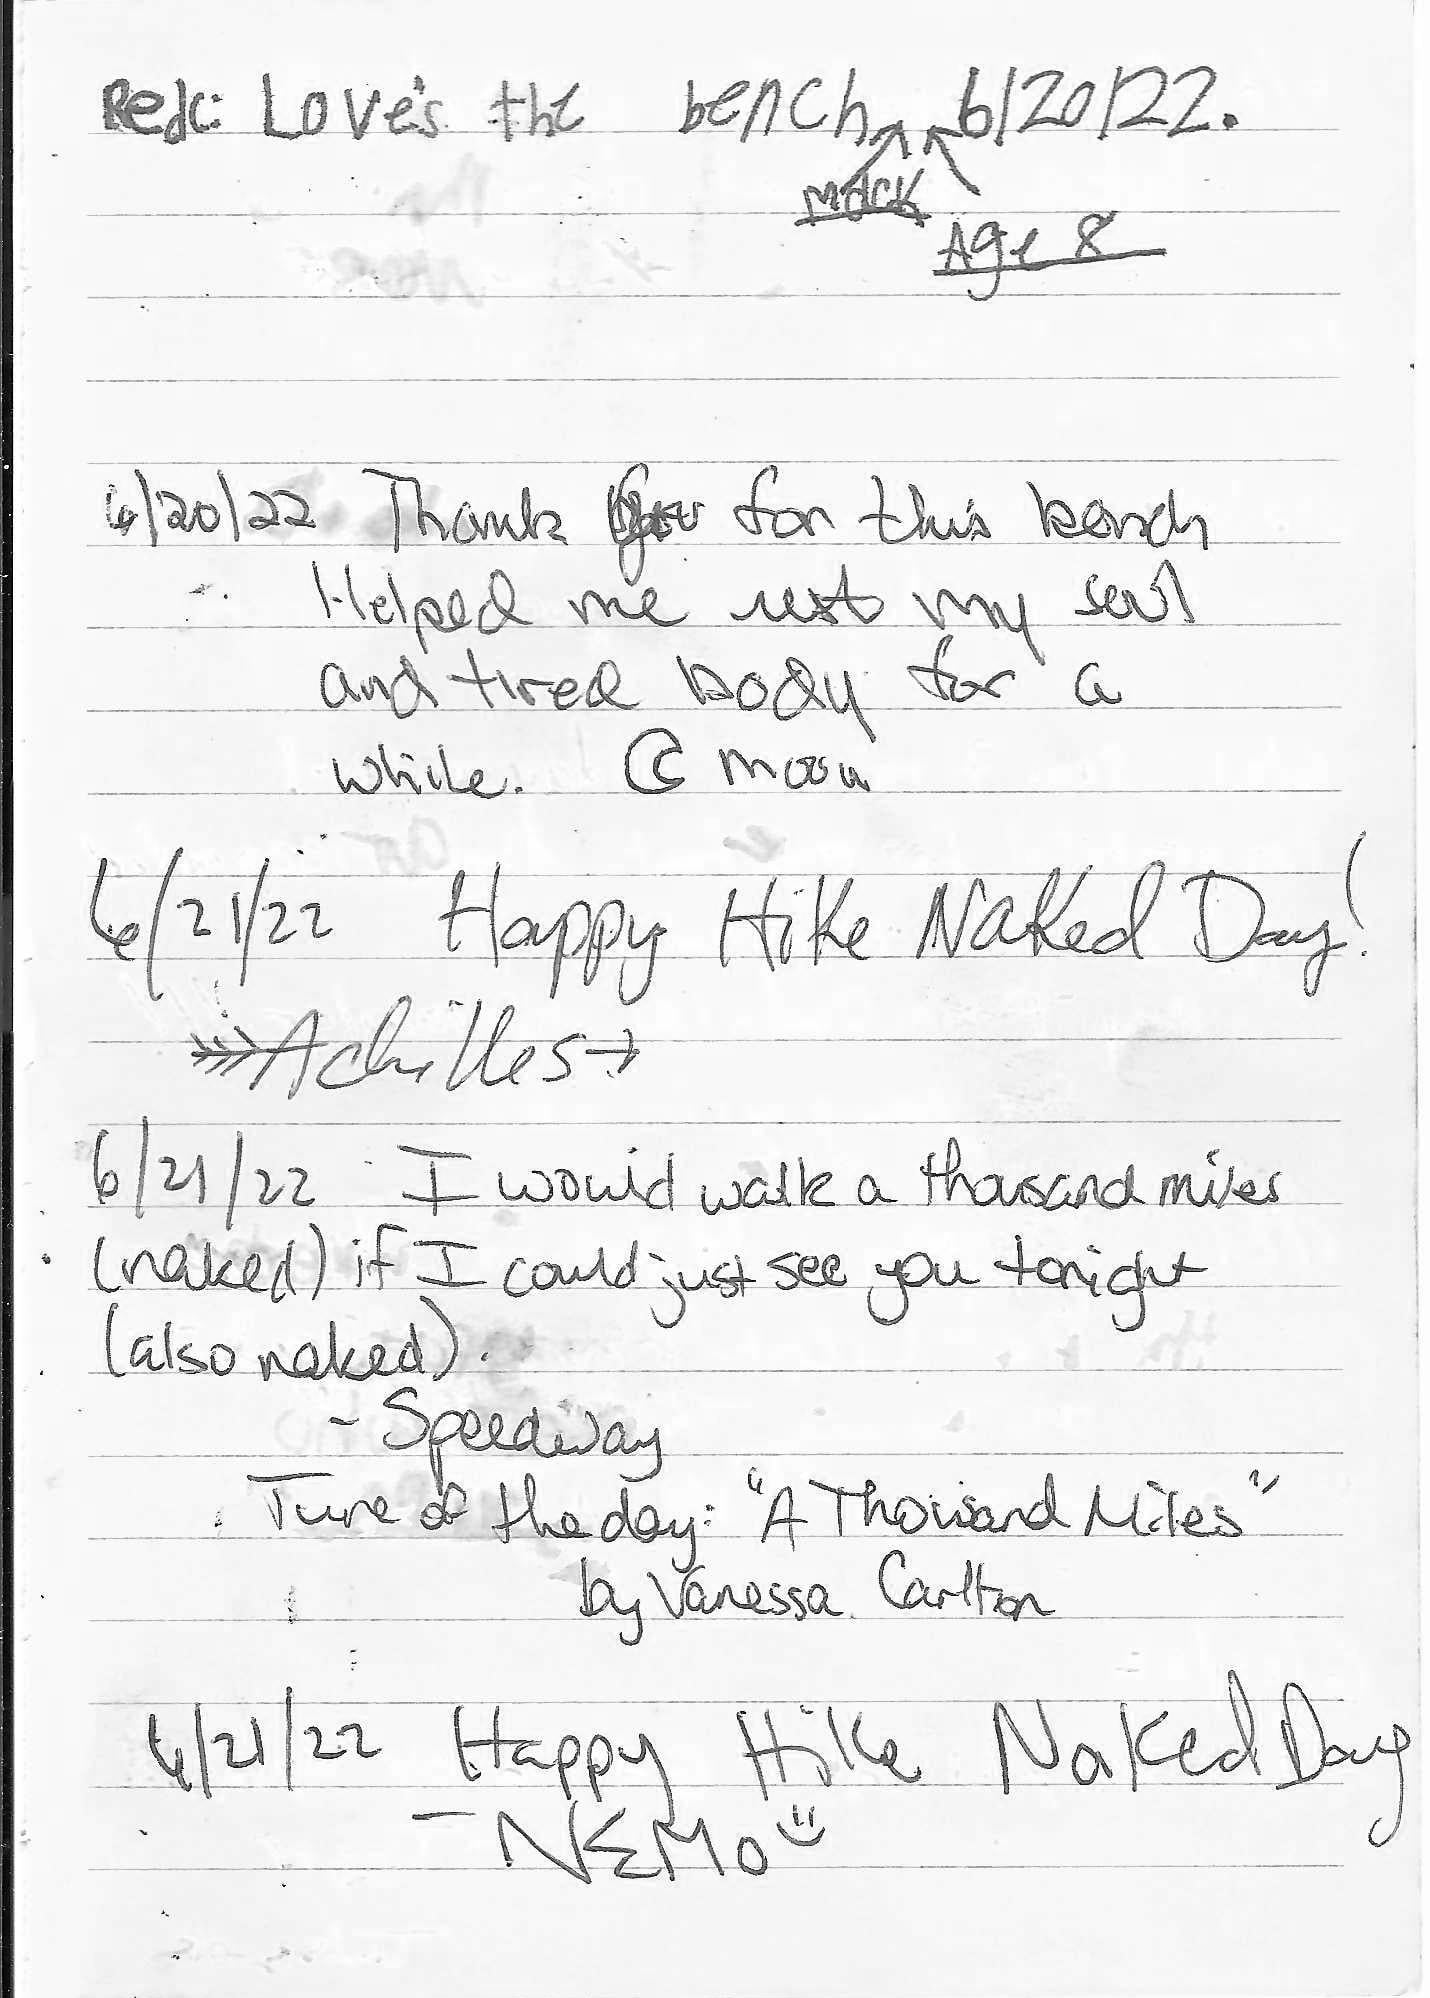 Redc: Love's the bench 6/20/22.
Mack
Age 8
6/20/22 Thank for this bench
Helped me rest my soul
and tired body for a
while. moon
6/21/22 Happy Hike Naked Day!
Achilles
6/21/22 I would walk a thousand miles
(naked) if I could just see you tonight
(also naked).
- Speedway
Tune of the day: "A Thousand Miles"
by Vanessa Carlton
6/21/22 Happy Hike Naked Day
- NEMO